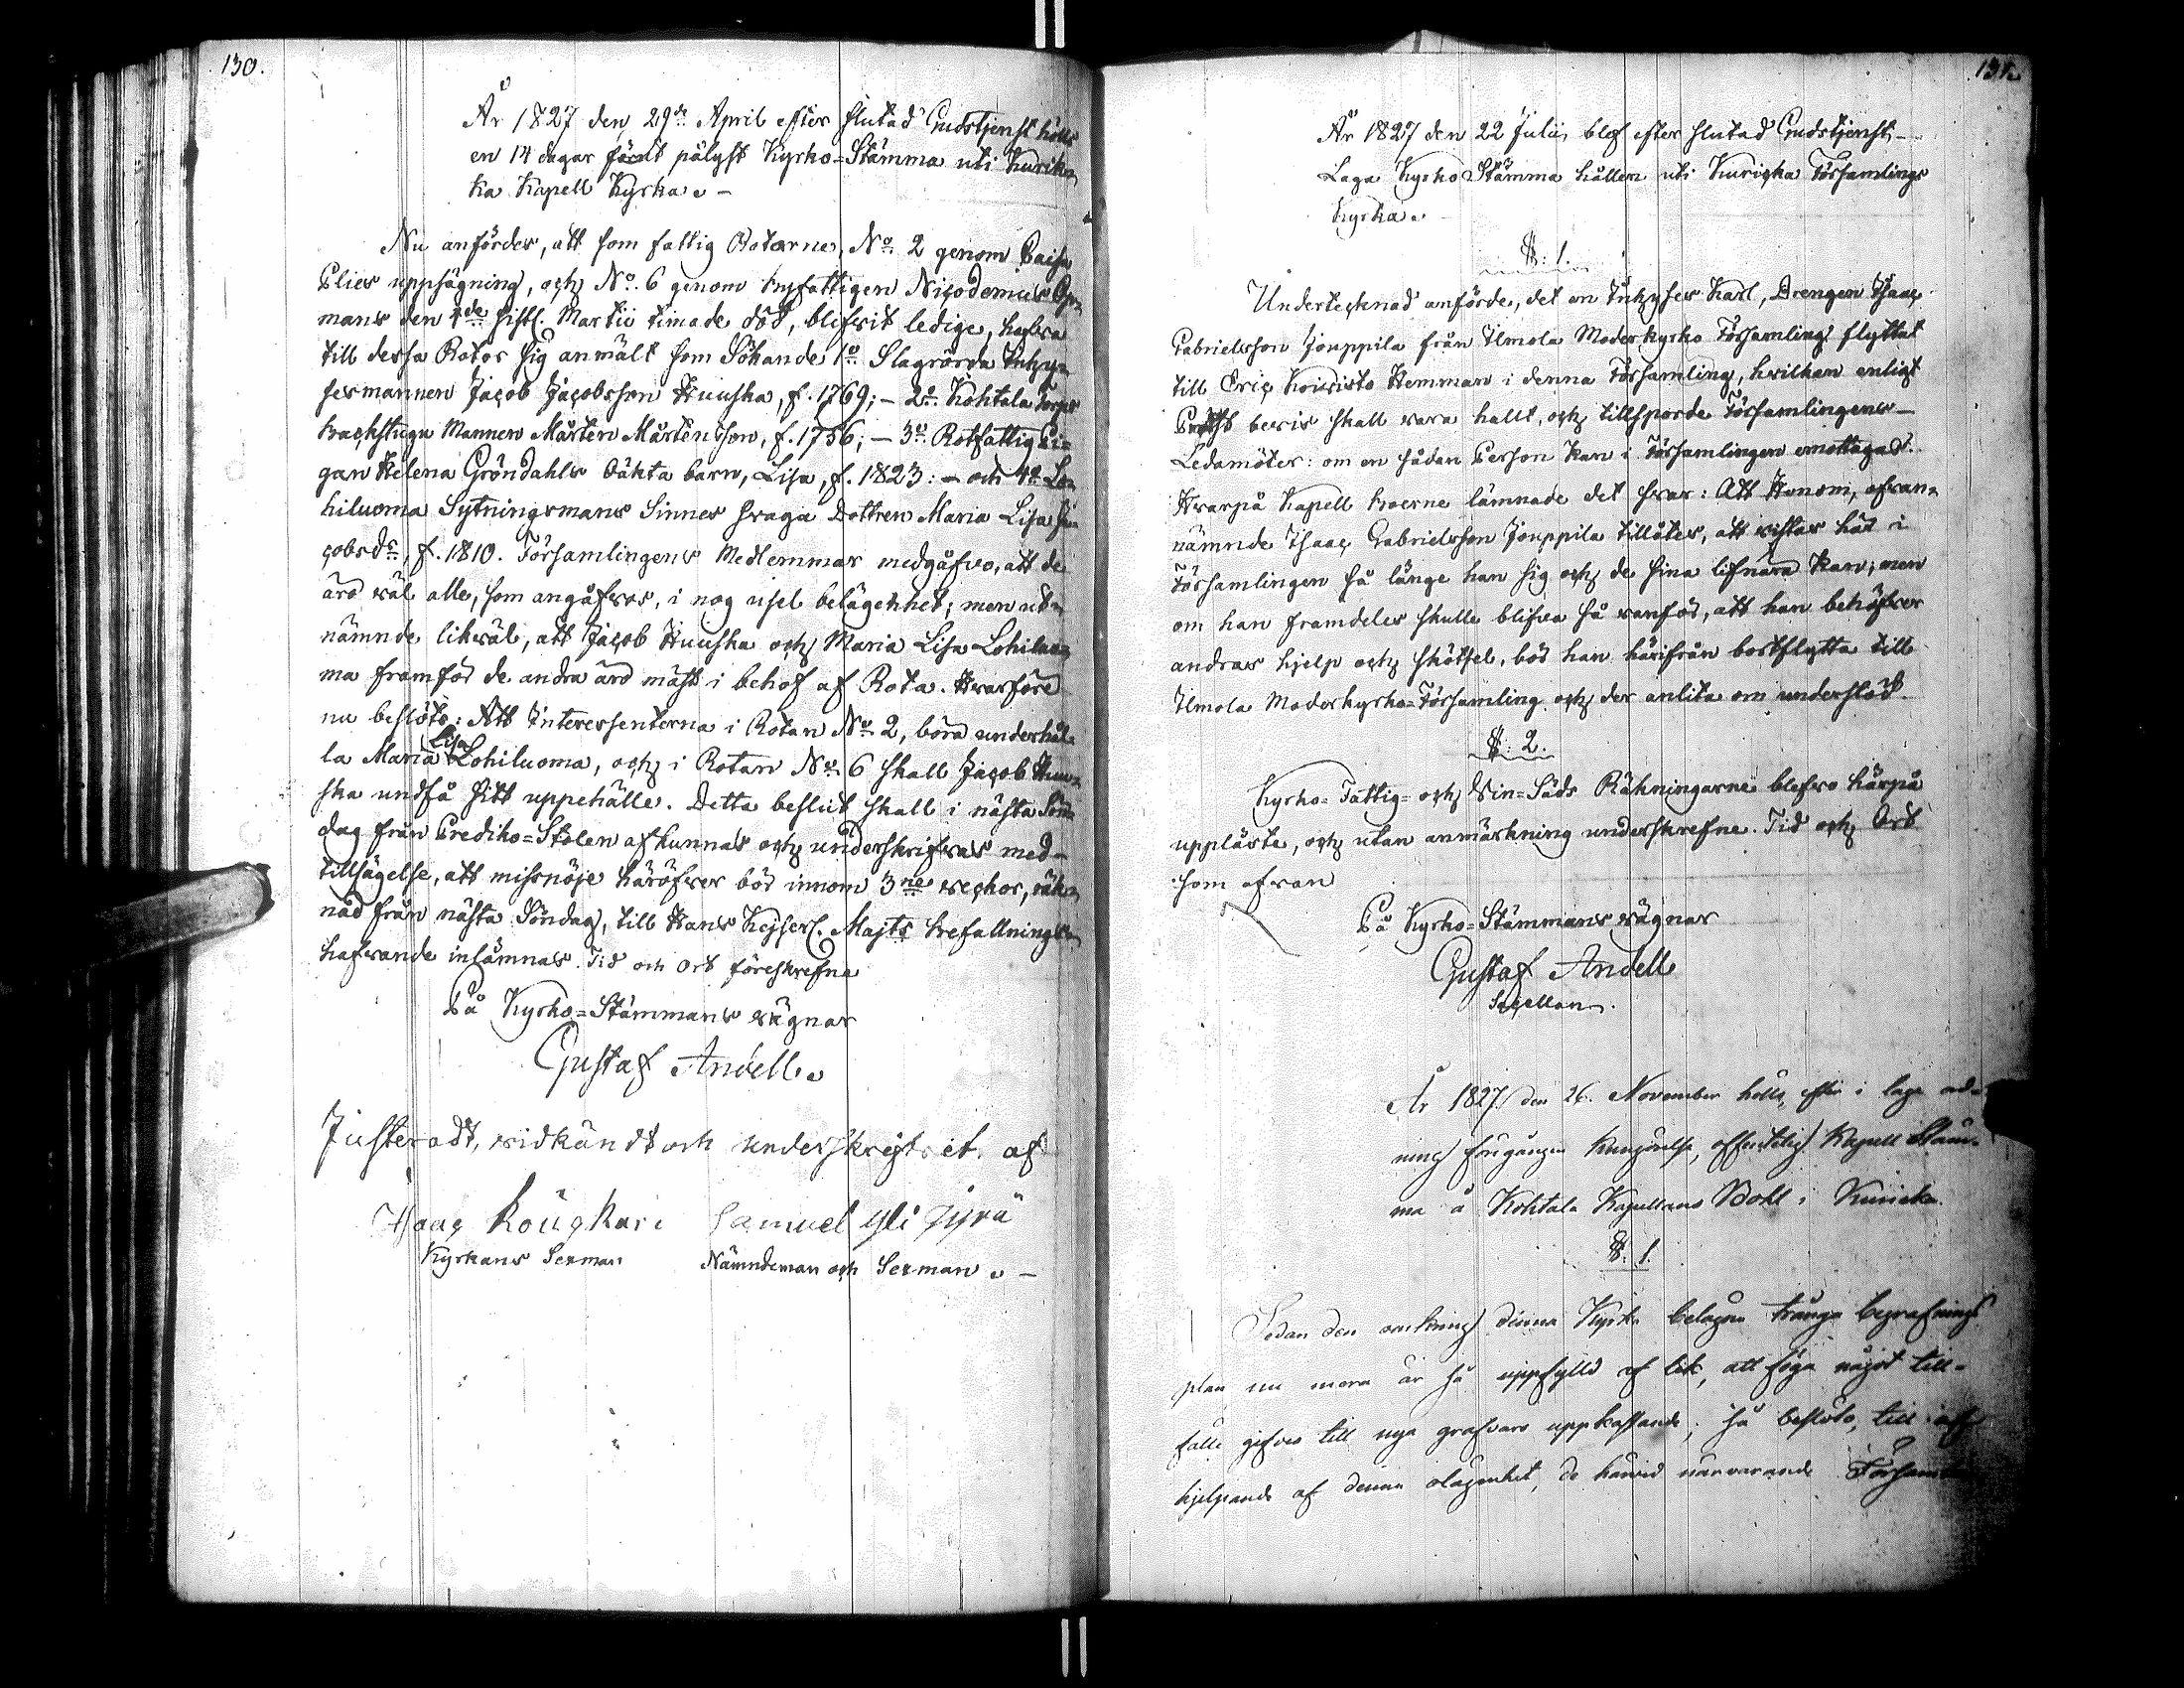 130.
År 1827 den 29de April efter slutad Gudstjenst hölls
en 14 dagar förut pålyst Kyrko=Stämma uti Kurik=
ka Kapell Kyrka. -
Nu anfördes, att som fattig Rotarne, No 2 genom
Elies uppsägning, och No. 6 genom Nicodemus
mans den sistl. Martii timade död, blifvit ledige, hafva
till dessa Rotor sig anmält som Sökande 1o Slagrörda Inhy=
sesmannen Jacob Jacobsson Huuska, f. 1769; - 2o. Kohtala torps
Backstugu Mannen Mårten Mårtensson, f. 1756; - 3o Rotfattig Pi=
gan Helena Gröndahls Oäkta barn, Lisa, f. 1823: - och 4o Lo=
hiluoma Sytningsmans Sinnes svaga Dottren Maria Lisa Ja=
cobsdr, f. 1810. Församlingens Medlemmar medgåfvo, att de
äro väl alle, som angåfvos, i nog usel belägenhet; men ut=
nämnde likväl, att Jacob Huuska och Maria Lisa Lohiluo=
ma framför de andra äro mäst i behof af Rota. Hvarföre
nu beslöts: Att Interessenterna i Rotan No 2, böra underhål=
la Maria Lisa Lohiluoma, och i Rotan No 6 skall Jacob Huu=
ska undfå sitt uppehälle. Detta beslut skall i nästa Sön=
dag från Prediko=Stolen afkunnas och underskrifvas med-
tillsägelse, att missnöje häröfver bör innom 3ne veckor, räk=
nad från nästa Söndag, till Hans Kejserl. Majts Befallnings=
hafvande inlämnas. Tid och Ort föreskrefne
På Kyrko=Stämmans vägnar
Gustaf Andell.
Justeradt, vidkändt och underskrifvet af
Isaac Samuel Yli Jyrä
Kyrkans Sexman Nämndeman och Sexman. -
131.
År 1827 den 22 Julii blef efter slutad Gudstjenst -
Laga Kyrko Stämma hållen uti Kuricka Församlings
Kyrka. -
§: 1.
Undertecknad anförde, det en Inhyses Karl, Drengen Isaac
Gabrielsson Jouppila från Ilmola Moderkyrko Församling flyttat
till Eric Koivisto Hemman i denna Församling, hvilken enligt
Prest bevis skall vara hallt, och tillsporde Församlingens -
Ledamöter: om en sådan Person kan i Församlingen emottagas?
Hvarpå Kapell Boerne lämnade det svar: Att Honom, ofvan=
nämnde Isaac Gabrielsson Jouppila tillåtes, att vistas här i
Församlingen så länge han sig och de sina lifnära kan; men
om han framdeles skulle blifva så vanför, att han behöfver
andras hjelp och skötsel, bör han härifrån bortflytta till
Ilmola Moderkyrko=Församling och der anlita om understöd.
§: 2.
Kyrko= Fattig= och Vin=Säds Räkningarne blefvo härpå
uppläste, och utan anmärkning underskrefne. Tid och Ort
som ofvan
På Kyrko=Stämmans vägnar
Gustaf Andell
Sacellan.
År 1827 den 26. November hölls, efter i laga ord=
ning föregången kungörelse, offentelig Kapell Stäm=
ma å Kohtala Kapellans Bohl i Kuricka.
§: 1.
Sedan den omkring denna Kyrka belägna trånga begrafnings
plan nu mera är så uppfylld af lik, att föga något till=
fälle gifves till nya grafvars uppkastande; så beslöto, till af=
hjelpande af denna olägenhet, de härvid närvarande